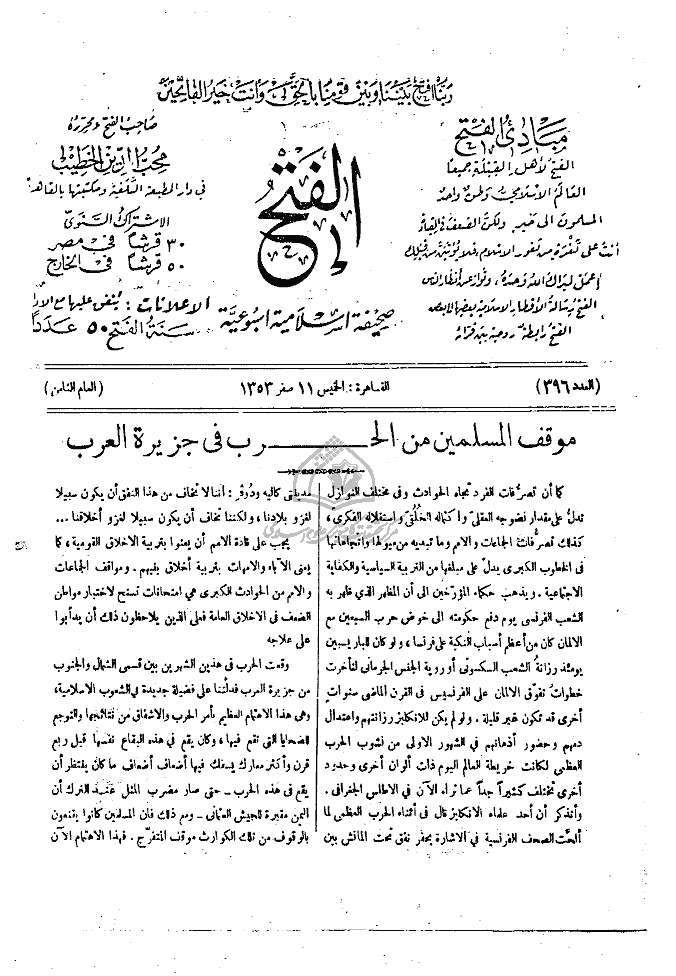 ربنا افتح بيننا وبين قومنا بالحق وأنت خير الفاتحين
مبادئ الفتح
الفتح لأهل القبلة جميعاً
العالم الاسلامي وطن واحد
المسلمون الى خير ولكن الضعف في القيادة
أنت على ثغرة من ثغور الاسلام فلا يؤتين من قبلك
إعمل ليراك الله وحده، وتوار عن أنظار الناس
الفتح رسالة الأقطار الاسلامية بعضها لبعض
الفتح رابطة روحية بين قرائه
الفتح
صحيفة إسلامية اسبوعية
صاحب الفتح ومحرره
محب الدين الخطيب
في دار المطبعة السلفية ومكتبتها بالقاهرة
الاشتراك السنوي
٣٠ قرشاً في مصر
٥٠ قرشاً في الخارج
الاعلانات : يتفق عليها مع الادارة
سنة الفتح ٥٠ عدداً
(العدد ٣٩٦)
القاهرة : الخميس ١١ صفر ١٣٥٣
(العام الثامن)
موقف المسلمين من الحرب في جزيرة العرب
كما أن تصرفات الفرد تجاه الحوادث وفى مختلف النوازل
تدل على مقدار نضوجه العقلي واكتماله الخلقي واستقلاله الفكري،
كذلك تصرفات الجماعات والامم وما تبديه من ميولها واتجاهاتها
فى الخطوب الكبرى يدل على مبلغها من التربية السياسية والكفاية
الاجتماعية . ويذهب حكماء المؤرخين الى أن المظهر الذى ظهر به
الشعب الفرنسى يوم دفع حكومته الى خوض حرب السبعين مع
الالمان كان من أعظم أسباب النكبة على فرنسا، ولو كان للباريسيين
يومئذ رزانة الشعب السكسونى أو روية الجنس الجرمانى لتأخرت
خطوات تفوق الالمان على الفرنسيس فى القرن الماضى سنوات
أخرى قد تكون غير قليلة . ولو لم يكن للانكليز رزانتهم واعتدال
دمهم وحضور أذهانهم فى الشهور الاولى من نشوب الحرب
العظمى لكانت خريطة العالم اليوم ذات ألوان أخرى وحدود
أخرى تختلف كثيراً جداً عما نراه الآن فى الاطلس الجغرافى .
وأتذكر أن أحد علماء الانكليز قال فى أثناء الحرب العظمى لما
ألحت الصحف الفرنسية فى الاشارة بحفر نفق تحت المانش بين
مدينتى كاليه ودوفر : أننا لا نخاف من هذا النفق أن يكون سبيلا
لغزو بلادنا ، ولكننا نخاف أن يكون سبيلا لغزو أخلاقنا ...
يجب على قادة الامم أن يعنوا بتربية الاخلاق القومية ، كما
يعنى الآباء والامهات بتربية أخلاق بنيهم . ومواقف الجماعات
والامم من الحوادث الكبرى هي امتحانات تسنح لاختبار مواطن
الضعف فى الاخلاق العامة فعلى الذين يلاحظون ذلك أن يدأبوا
على علاجه
وقعت الحرب فى هذين الشهرين بين قسمى الشمال والجنوب
من جزيرة العرب فدلتنا على فضيلة جديدة فى الشعوب الاسلامية،
وهى هذا الاهتمام العظيم بأمر الحرب والاشفاق من نتائجها والتوجع
للضحايا التى تقع فيها ، وكان يقع فى هذه البقاع نفسها قبل ربع
قرن وأكثر معارك يسفك فيها أضعاف أضعاف ما كان ينتظر أن
يقع فى هذه الحرب - حتى صار مضرب المثل عند الترك أن
اليمن مقبرة للجيش العثمانى - ومع ذلك فان المسلمين كانوا يقنعون
بالوقوف من تلك الكوارث موقف المتفرج . فهذا الاهتمام الآن